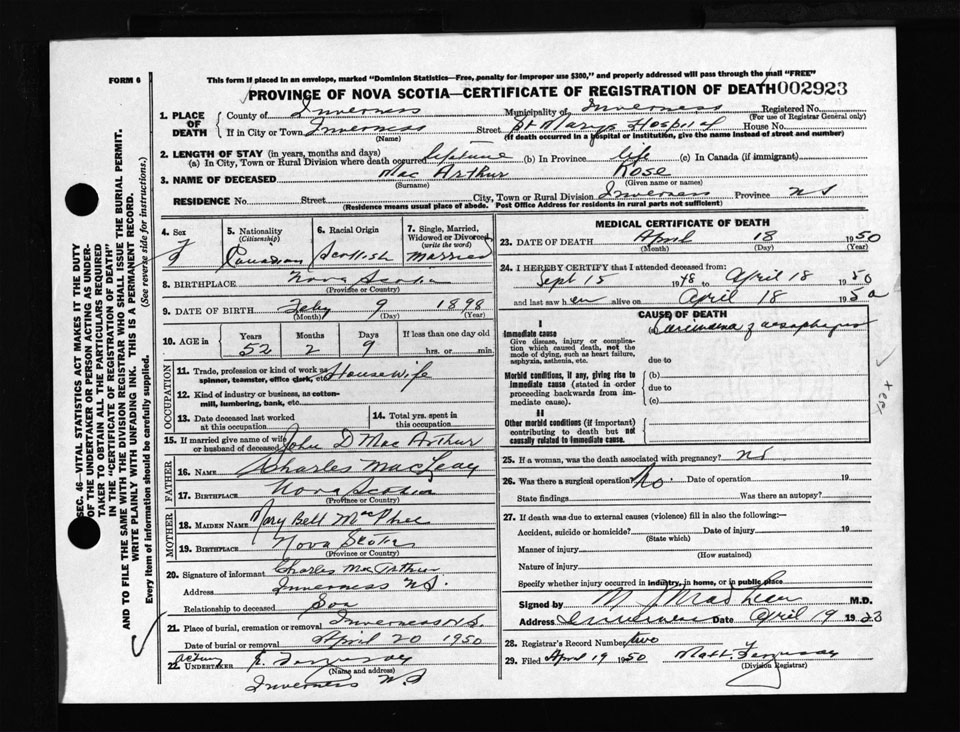 FORM 6
This form if placed in an envelope, marked "Dominion Statistics—Free, penalty for improper use $300," and properly addressed will pass through the mail "FREE"
PROVINCE OF NOVA SCOTIA—CERTIFICATE OF REGISTRATION OF DEATH 002923
1. PLACE OF DEATH
County of Inverness Municipality of Inverness Registered No.
(For use of Registrar General only)
If in City or Town Inverness Street St Marys Hospital House No.
(Name) (If death occurred in a hospital or institution, give the name instead of street and number)
2. LENGTH OF STAY (in years, months and days)
(a) In City, Town or Rural Division where death occurred (b) In Province life (c) In Canada (if immigrant)
3. NAME OF DECEASED Mac Arthur Rose
(Surname) (Given name or names)
RESIDENCE No. Street City, Town or Rural Division Inverness Province N S
(Residence means usual place of abode. Post Office Address for residents in rural parts not sufficient)
4. Sex F
5. Nationality (Citizenship) Canadian
6. Racial Origin Scottish
7. Single, Married, Widowed or Divorced (write the word) Married
8. BIRTHPLACE Nova Scotia
(Province or Country)
9. DATE OF BIRTH Feby 9 1898
(Month) (Day) (Year)
10. AGE in Years Months Days If less than one day old
52 2 9 hrs. or min.
OCCUPATION
11. Trade, profession or kind of work as spinner, teamster, office clerk, etc. Housewife
12. Kind of industry or business, as cotton-mill, lumbering, bank, etc.
13. Date deceased last worked at this occupation
14. Total yrs. spent in this occupation
15. If married give name of wife or husband of deceased John D Mac Arthur
FATHER
16. Name Charles MacLeay
17. Birthplace Nova Scotia
(Province or Country)
MOTHER
18. MAIDEN NAME Mary Bell MacPhee
19. BIRTHPLACE Nova Scotia
(Province or Country)
20. Signature of informant Charles MacArthur
Address Inverness N S.
Relationship to deceased Son
21. Place of burial, cremation or removal Inverness N.S.
Date of burial or removal April 20 1950
22. Acting UNDERTAKER
(Name and address)
Inverness N.S
MEDICAL CERTIFICATE OF DEATH
23. DATE OF DEATH April 18 1950
(Month) (Day) (Year)
24. I HEREBY CERTIFY that I attended deceased from:
Sept 15 1948 to April 18 1950
and last saw h er alive on April 18 1950
CAUSE OF DEATH
I
Immediate cause
Give disease, injury or complication which caused death, not the mode of dying, such as heart failure, asphyxia, asthenia, etc.
(a) Carcinoma of aesophagus
due to
Morbid conditions, if any, giving rise to immediate cause (stated in order proceeding backwards from immediate cause).
(b)
due to
(c)
II
Other morbid conditions (if important) contributing to death but not causally related to immediate cause.
25. If a woman, was the death associated with pregnancy? No
26. Was there a surgical operation? No. Date of operation 19
State findings Was there an autopsy?
27. If death was due to external causes (violence) fill in also the following:—
Accident, suicide or homicide? Date of injury 19
(State which)
Manner of injury
(How sustained)
Nature of injury
Specify whether injury occurred in industry, in home, or in public place
Signed by M.D.
Address Inverness Date April 19 19
28. Registrar's Record Number two
29. Filed April 19 1950 Matt. Ferguson
(Division Registrar)
SEC. 46—VITAL STATISTICS ACT MAKES IT THE DUTY
OF THE UNDERTAKER OR PERSON ACTING AS UNDER-
TAKER TO OBTAIN ALL THE PARTICULARS REQUIRED
IN THE "CERTIFICATE OF REGISTRATION OF DEATH"
AND TO FILE THE SAME WITH THE DIVISION REGISTRAR WHO SHALL ISSUE THE BURIAL PERMIT.
WRITE PLAINLY WITH UNFADING INK. THIS IS A PERMANENT RECORD.
Every item of information should be carefully supplied. (See reverse side for instructions.)